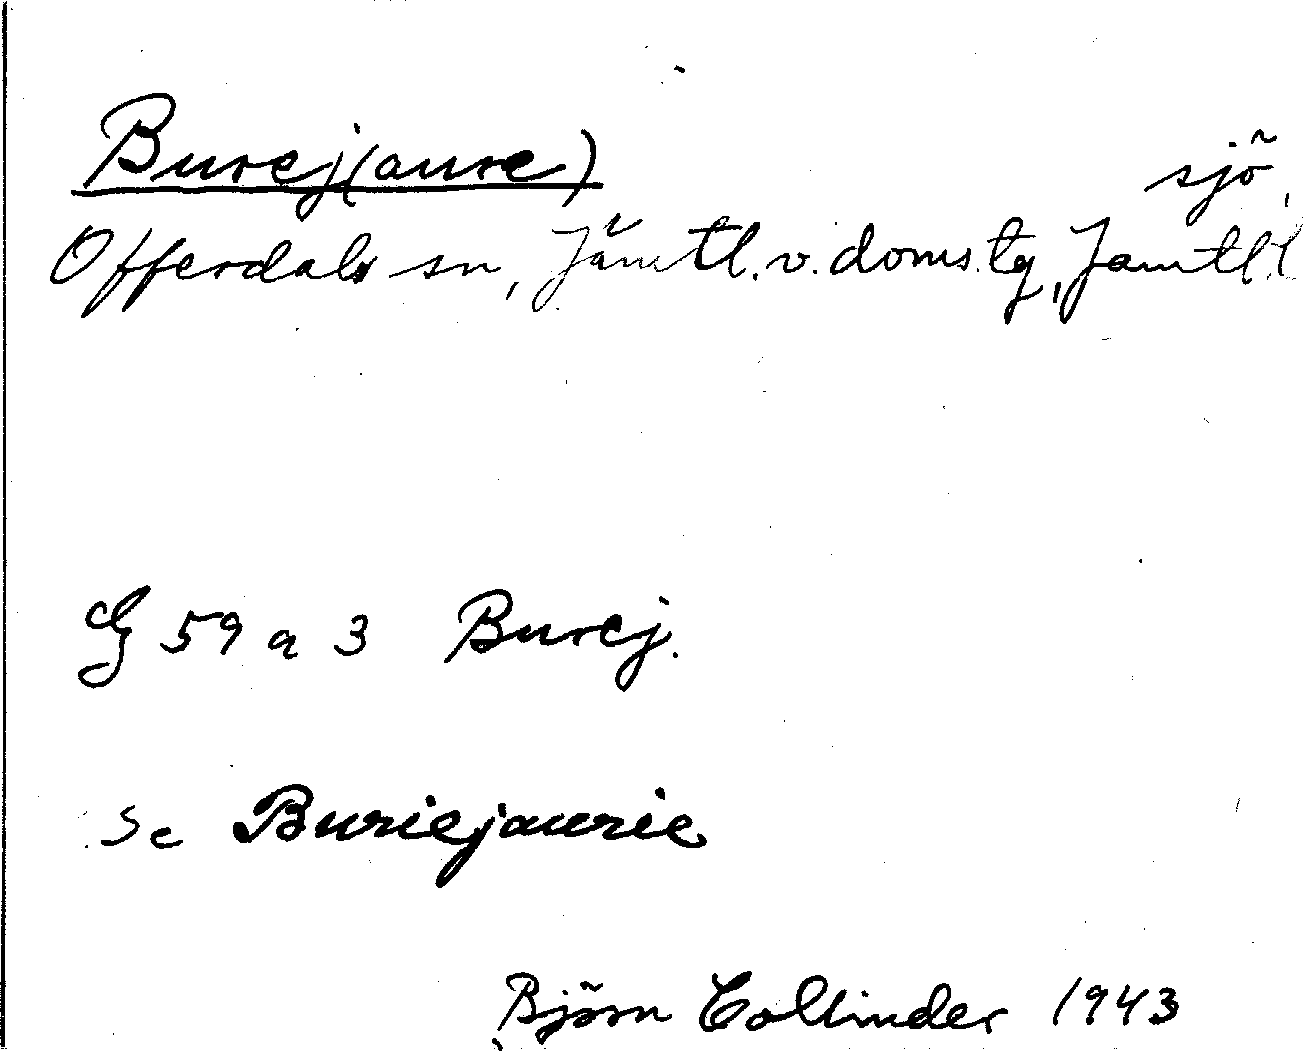 Burej(aure) sjö
Offerdals sn, Jämtl. v. doms.tg, Jämtl.l
G 59 a 3 Burej.
Se Buriejaurie
Björn Collinder 1943